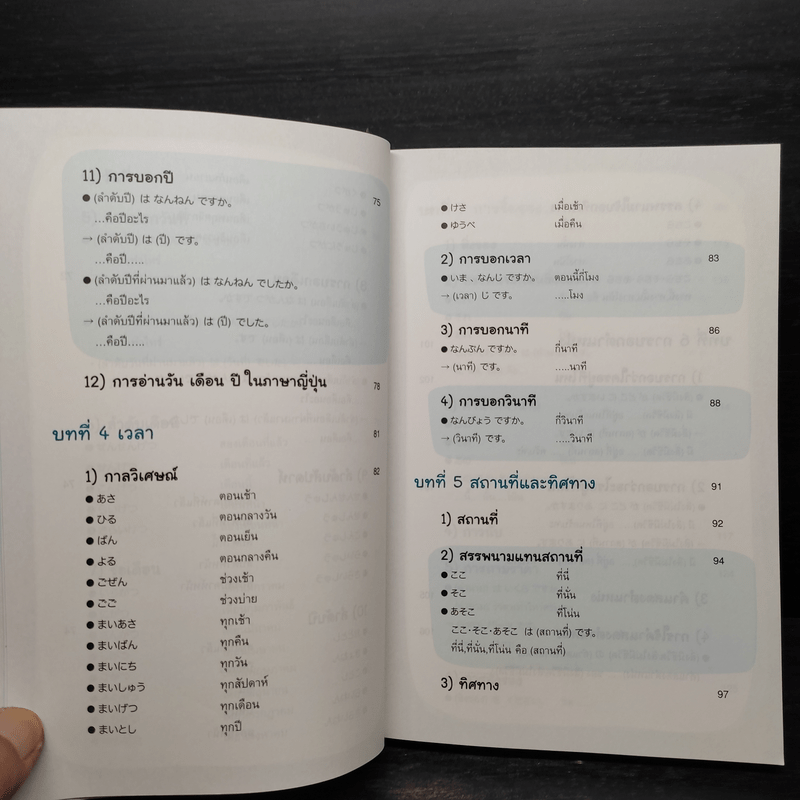 11) การบอกปี
● (ลำดับปี) は なんねん ですか。 75
...คือปีอะไร
→ (ลำดับปี) は (ปี) です。
...คือปี.....
● (ลำดับปีที่ผ่านมาแล้ว) は なんねん でしたか。
...คือปีอะไร
→ (ลำดับปีที่ผ่านมาแล้ว) は (ปี) でした。
...คือปี.....
12) การอ่านวัน เดือน ปี ในภาษาญี่ปุ่น 78
บทที่ 4 เวลา 81
1) กาลวิเศษณ์ 82
● あさ ตอนเช้า
● ひる ตอนกลางวัน
● ばん ตอนเย็น
● よる ตอนกลางคืน
● ごぜん ช่วงเช้า
● ごご ช่วงบ่าย
● まいあさ ทุกเช้า
● まいばん ทุกคืน
● まいにち ทุกวัน
● まいしゅう ทุกสัปดาห์
● まいげつ ทุกเดือน
● まいとし ทุกปี
● けさ เมื่อเช้า
● ゆうべ เมื่อคืน
2) การบอกเวลา 83
● いま、なんじ ですか。 ตอนนี้กี่โมง
→ (เวลา) じ です。 .....โมง
3) การบอกนาที 86
● なんぷん ですか。 กี่นาที
→ (นาที) です。 .....นาที
4) การบอกวินาที 88
● なんびょう ですか。 กี่วินาที
→ (วินาที) です。 .....วินาที
บทที่ 5 สถานที่และทิศทาง 91
1) สถานที่ 92
2) สรรพนามแทนสถานที่ 94
● ここ ที่นี่
● そこ ที่นั่น
● あそこ ที่โน่น
ここ・そこ・あそこ は (สถานที่) です。
ที่นี่,ที่นั่น,ที่โน่น คือ (สถานที่)
3) ทิศทาง 97